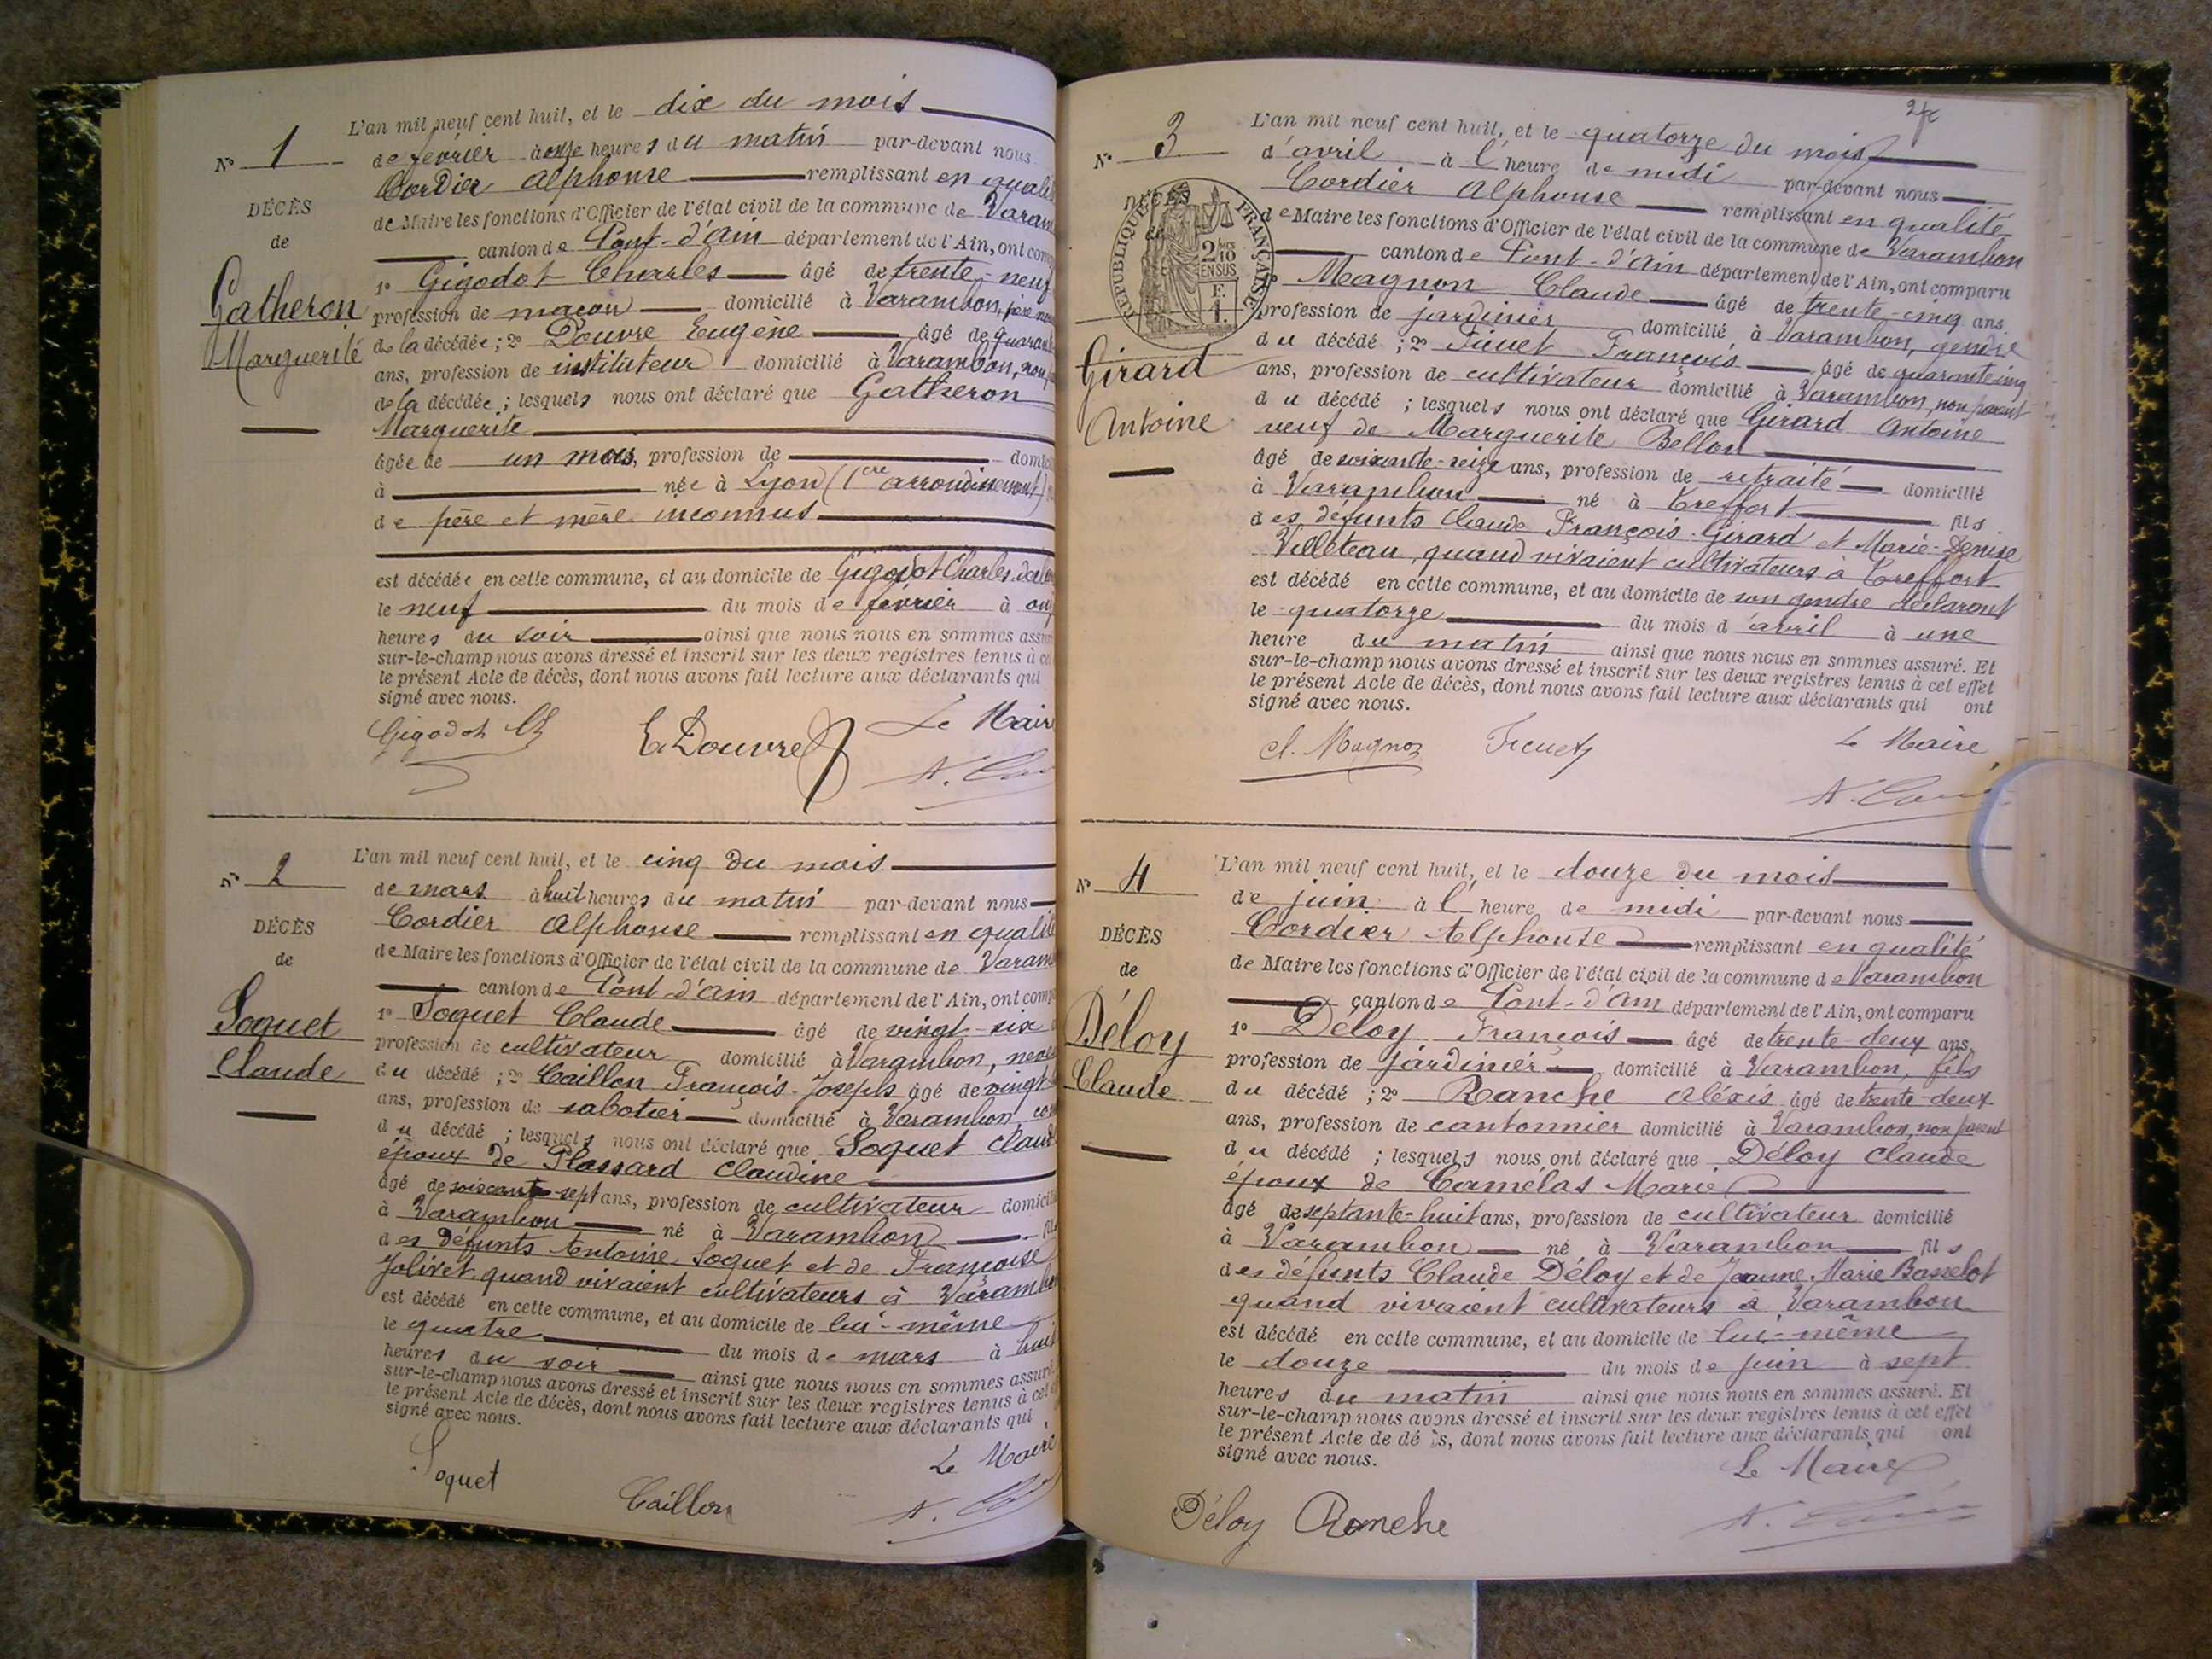 N° 1
DÉCÈS
de
Gatheron
Marguerite
L'an mil neuf cent huit, et le dix du mois
de février à onze heures du matin par-devant nous
Cordier Alphonse remplissant en
de Maire les fonctions d'Officier de l'état civil de la commune de
canton de Pont-d'Ain département de l'Ain, ont
1° Gigodot Charles âgé de trente-neuf
profession de maçon domicilié à Varambon, père
de la décédée ; 2° Douvre Eugène âgé de
ans, profession de instituteur domicilié à Varambon, non
de la décédée ; lesquels nous ont déclaré que Gatheron
Marguerite
âgée de un mois, profession de
à née à Lyon (1er arrondissement)
de père et mère inconnus
est décédée en cette commune, et au domicile de Gigodot Charles
le neuf du mois de février à
heures du soir ainsi que nous nous en sommes
sur-le-champ nous avons dressé et inscrit sur les deux registres tenus à
le présent Acte de décès, dont nous avons fait lecture aux déclarants qui
signé avec nous.
Gigodot Ch E. Douvre Le Maire
N° 2
DÉCÈS
de
Soquet
Claude
L'an mil neuf cent huit, et le cinq du mois
de mars à huit heures du matin par-devant nous
Cordier Alphonse remplissant en qualité
de Maire les fonctions d'Officier de l'état civil de la commune de
canton de Pont-d'Ain département de l'Ain, ont
1° Soquet Claude âgé de vingt-six
profession de cultivateur domicilié à Varambon, neveu
du décédé ; 2° Caillon François-Joseph âgé de
ans, profession de sabotier domicilié à Varambon,
du décédé ; lesquels nous ont déclaré que Soquet Claude
époux de Plassard Claudine
âgé de soixante-sept ans, profession de cultivateur
à Varambon né à Varambon
des défunts Antoine Soquet et de Françoise
Jolivet quand vivaient cultivateurs à
est décédé en cette commune, et au domicile de lui-même
le quatre du mois de mars à huit
heures du soir ainsi que nous nous en sommes assuré.
sur-le-champ nous avons dressé et inscrit sur les deux registres tenus à cet
le présent Acte de décès, dont nous avons fait lecture aux déclarants qui
signé avec nous.
Le Maire
Soquet Caillon
N° 3
DÉCÈS
de
RÉPUBLIQUE FRANÇAISE
2 10
EN SUS
Girard
Antoine
L'an mil neuf cent huit, et le quatorze du mois
d'avril à l'heure de midi par-devant nous
Cordier Alphonse remplissant en qualité
de Maire les fonctions d'Officier de l'état civil de la commune de Varambon
canton de Pont-d'Ain département de l'Ain, ont comparu
1° Magnon Claude âgé de trente-cinq ans
profession de jardinier domicilié à Varambon, gendre
du décédé ; 2° François âgé de quarante-cinq
ans, profession de cultivateur domicilié à Varambon, non parent
du décédé ; lesquels nous ont déclaré que Girard Antoine
veuf de Marguerite Bellon
âgé de soixante-seize ans, profession de retraité domicilié
à Varambon né à Treffort fils
des défunts Claude François Girard et Marie-Denise
Villeteau, quand vivaient cultivateurs à Treffort
est décédé en cette commune, et au domicile de son gendre déclarant
le quatorze du mois d'avril à une
heure du matin ainsi que nous nous en sommes assuré. Et
sur-le-champ nous avons dressé et inscrit sur les deux registres tenus à cet effet
le présent Acte de décès, dont nous avons fait lecture aux déclarants qui ont
signé avec nous.
Cl. Magnon Le Maire
N° 4
DÉCÈS
de
Déloy
Claude
L'an mil neuf cent huit, et le douze du mois
de juin à l'heure de midi par-devant nous
Cordier Alphonse remplissant en qualité
de Maire les fonctions d'Officier de l'état civil de la commune de Varambon
canton de Pont-d'Ain département de l'Ain, ont comparu
1° Déloy François âgé de trente-deux ans,
profession de jardinier domicilié à Varambon, fils
du décédé ; 2° Ranche Aléxis âgé de trente-deux
ans, profession de cantonnier domicilié à Varambon, non parent
du décédé ; lesquels nous ont déclaré que Déloy Claude
époux de Camélas Marie
âgé de septante-huit ans, profession de cultivateur domicilié
à Varambon né à Varambon fils
des défunts Claude Déloy et de Jeanne Marie Basselot
quand vivaient cultivateurs à Varambon
est décédé en cette commune, et au domicile de lui-même
le douze du mois de juin à sept
heures du matin ainsi que nous nous en sommes assuré. Et
sur-le-champ nous avons dressé et inscrit sur les deux registres tenus à cet effet
le présent Acte de décès, dont nous avons fait lecture aux déclarants qui ont
signé avec nous.
Le Maire
Déloy Ranche